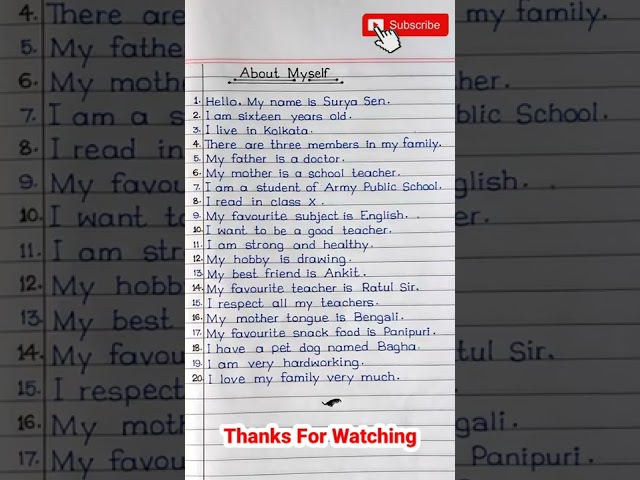 Subscribe
About Myself
1. Hello. My name is Surya Sen.
2. I am sixteen years old.
3. I live in Kolkata.
4. There are three members in my family.
5. My father is a doctor.
6. My mother is a school teacher.
7. I am a student of Army Public School.
8. I read in class X.
9. My favourite subject is English.
10. I want to be a good teacher.
11. I am strong and healthy.
12. My hobby is drawing.
13. My best friend is Ankit.
14. My favourite teacher is Ratul Sir.
15. I respect all my teachers.
16. My mother tongue is Bengali.
17. My favourite snack food is Panipuri.
18. I have a pet dog named Bagha.
19. I am very hardworking.
20. I love my family very much.
Thanks For Watching
4. There are
5. My fathe
6. My mothe
7. I am a s
8. I read in
9. My favou
10. I want to
11. I am str
12. My hobb
13. My best
14. My favou
15. I respect
16. My moth
17. My favou
my family.
her.
blic School.
glish.
er.
tul Sir.
gali.
Panipuri.